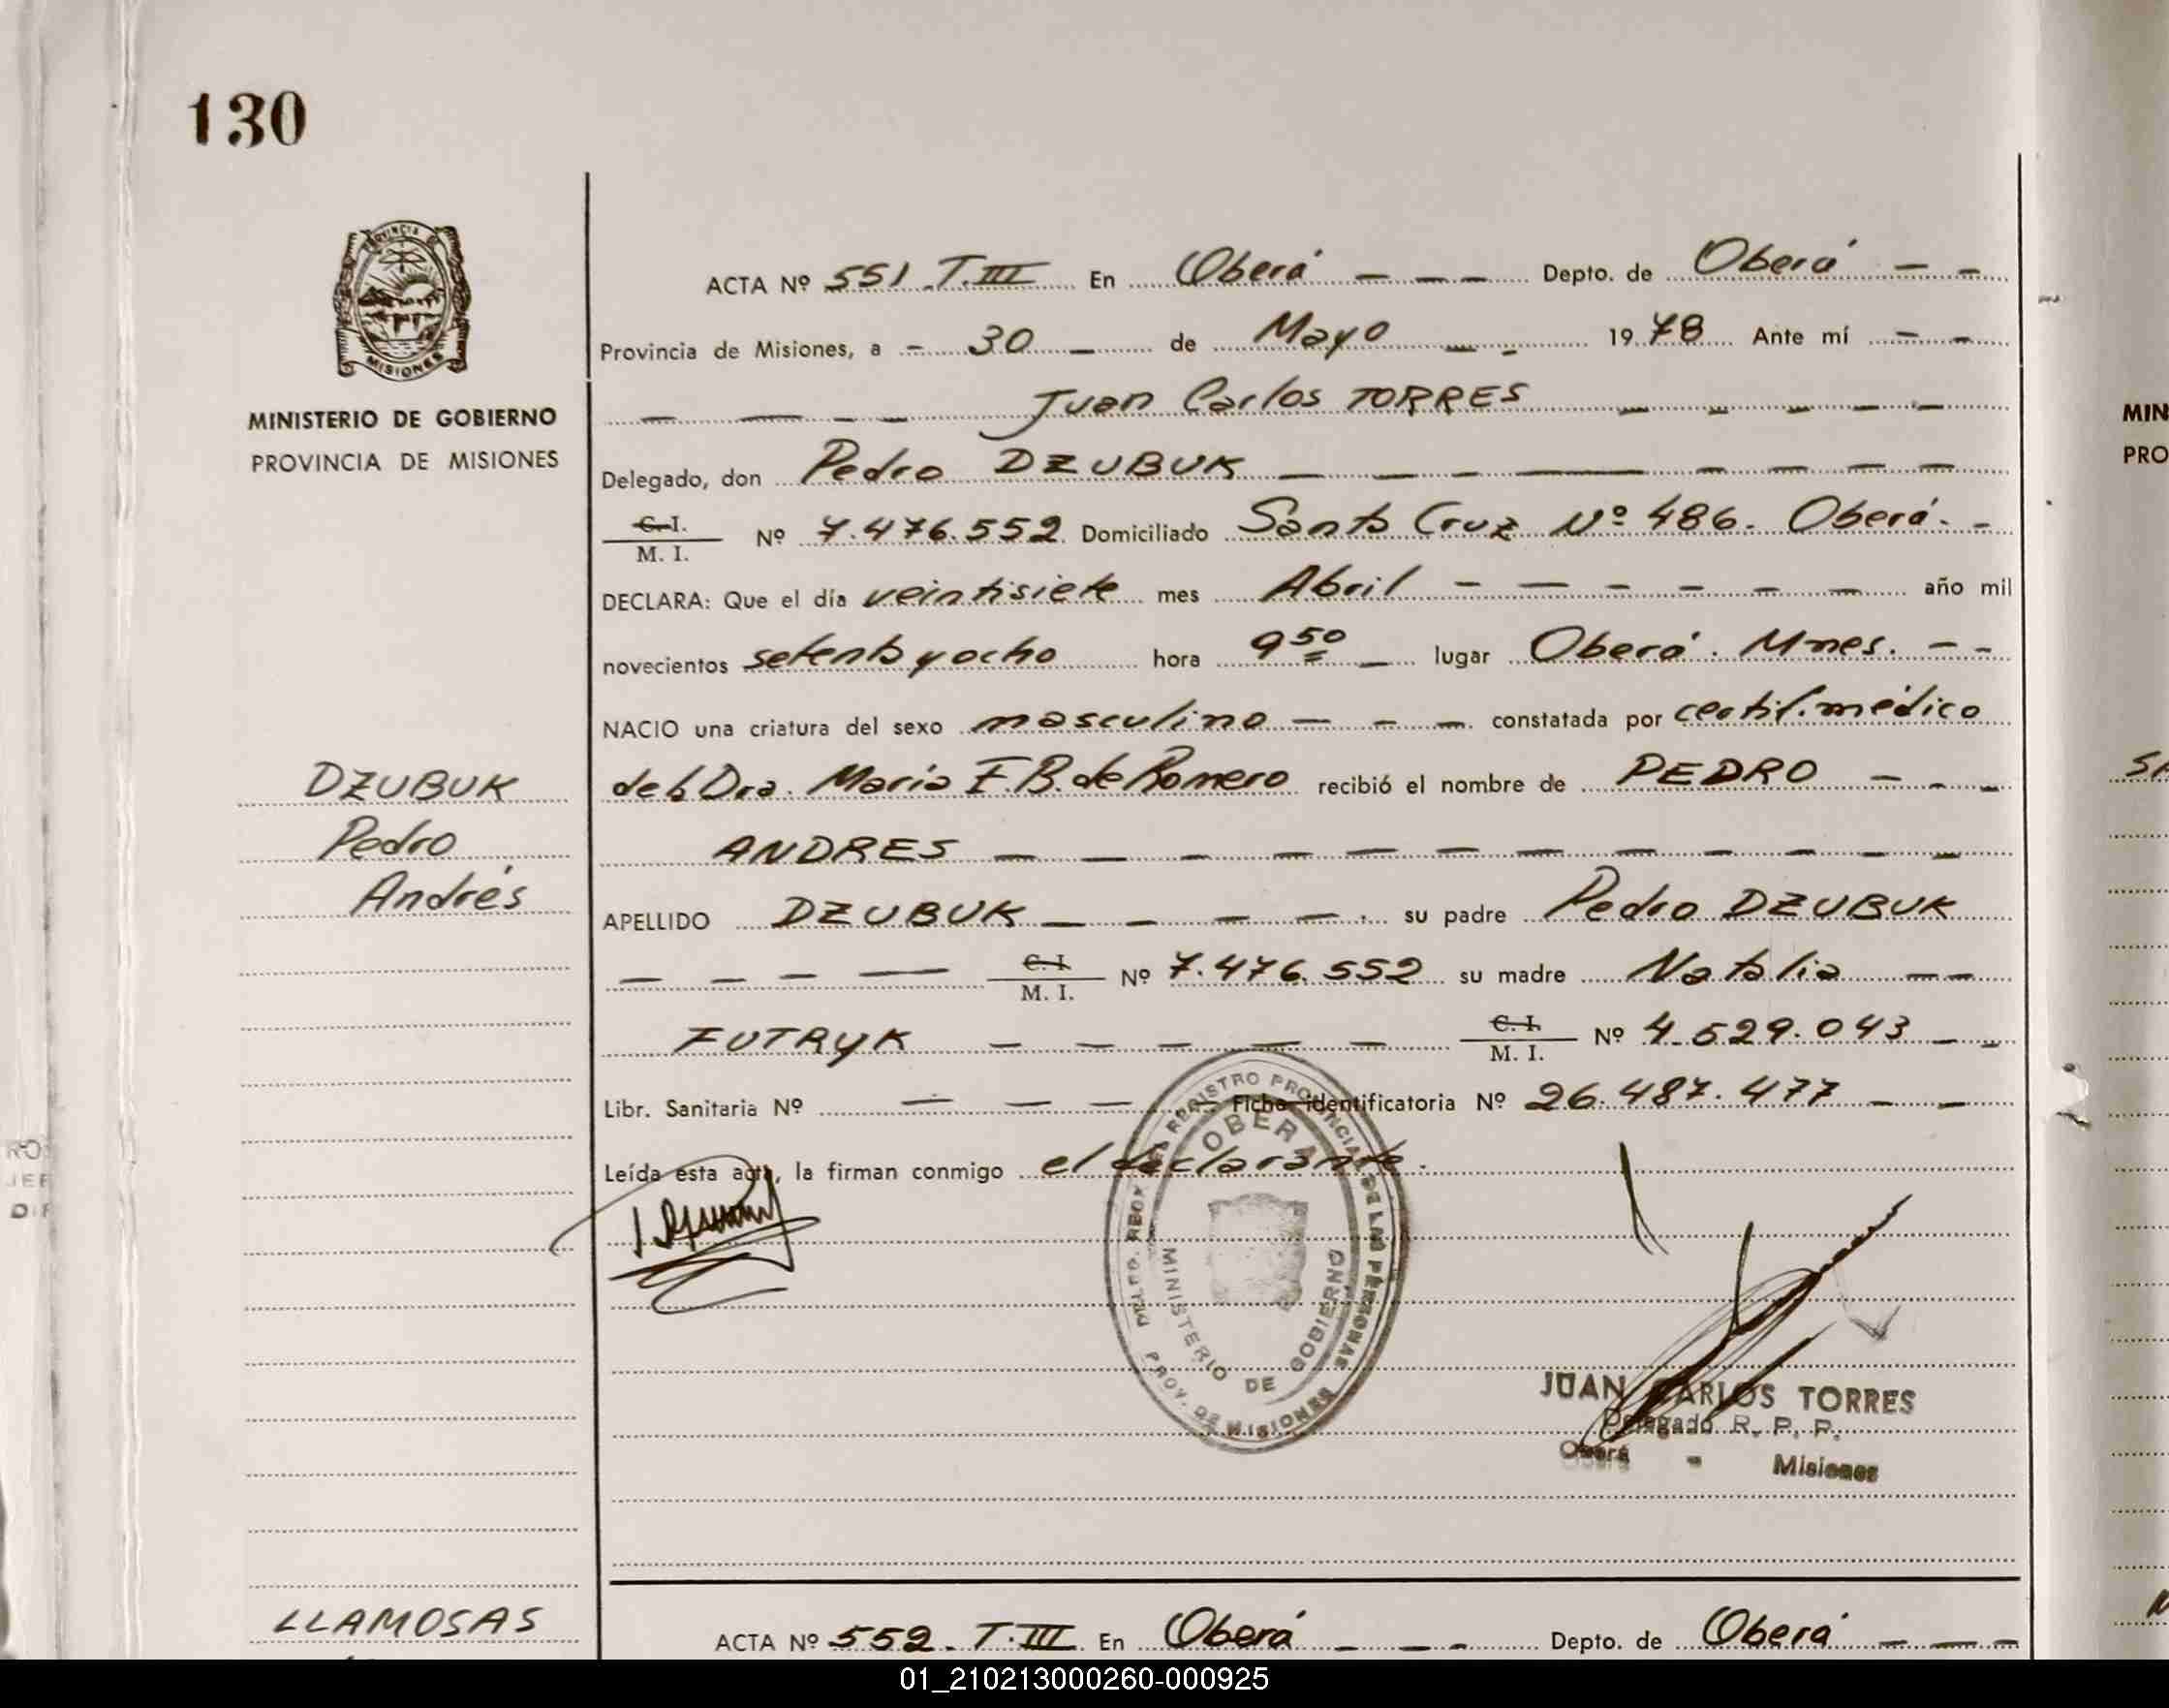 130
PROVINCIA DE
MISIONES
MINISTERIO DE GOBIERNO
PROVINCIA DE MISIONES
DZUBUK
Pedro
Andrés
LLAMOSAS
ACTA Nº 551. T. III En Oberá Depto. de Oberá
Provincia de Misiones, a 30 de Mayo 1978 Ante mí
Juan Carlos TORRES
Delegado, don Pedro DZUBUK
C. I. / M. I. Nº 7.476.552 Domiciliado Santa Cruz Nº 486. Oberá.
DECLARA: Que el día veintisiete mes Abril año mil
novecientos setenta y ocho hora 9 50 lugar Oberá. Mnes.
NACIO una criatura del sexo masculino constatada por certif. médico
de la Dra. María F. B. de Romero recibió el nombre de PEDRO
ANDRES
APELLIDO DZUBUK su padre Pedro DZUBUK
C. I. / M. I. Nº 7.476.552 su madre Natalia
FUTRYK C. I. / M. I. Nº 4.529.043
Libr. Sanitaria Nº Ficha identificatoria Nº 26.487.477
Leída esta acta, la firman conmigo el declarante.
REGISTRO PROVINCIAL DE LAS PERSONAS
OBERA
MINISTERIO DE GOBIERNO
PROV. DE MISIONES
JUAN CARLOS TORRES
Delegado R. P. P.
Oberá - Misiones
ACTA Nº 552. T. III En Oberá Depto. de Oberá
MIN
PRO
01_210213000260-000925